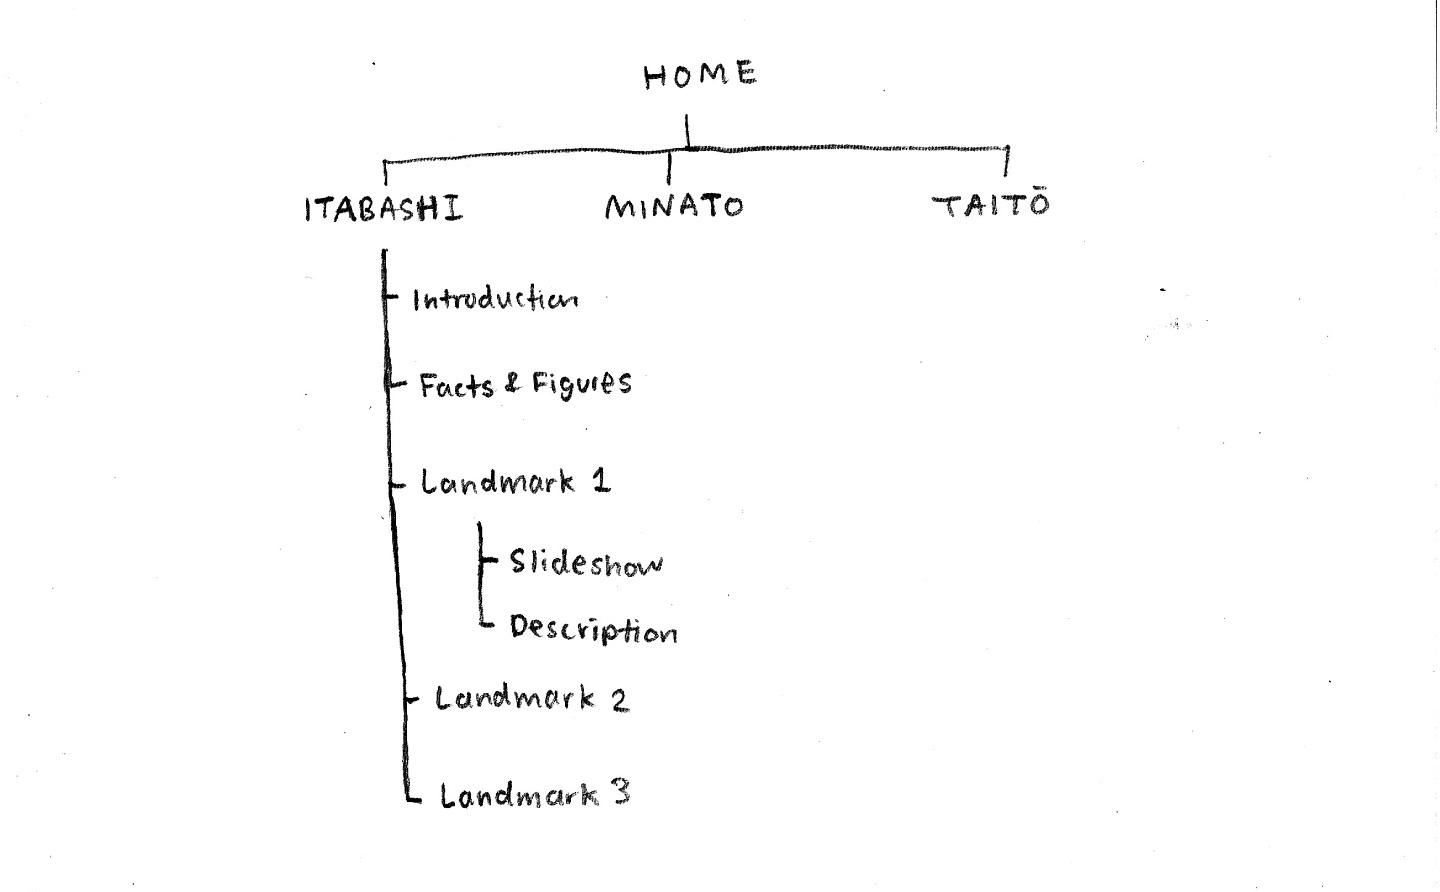 HOME
ITABASHI MINATO TAITŌ
Introduction
Facts & Figures
Landmark 1
Slideshow
Description
Landmark 2
Landmark 3